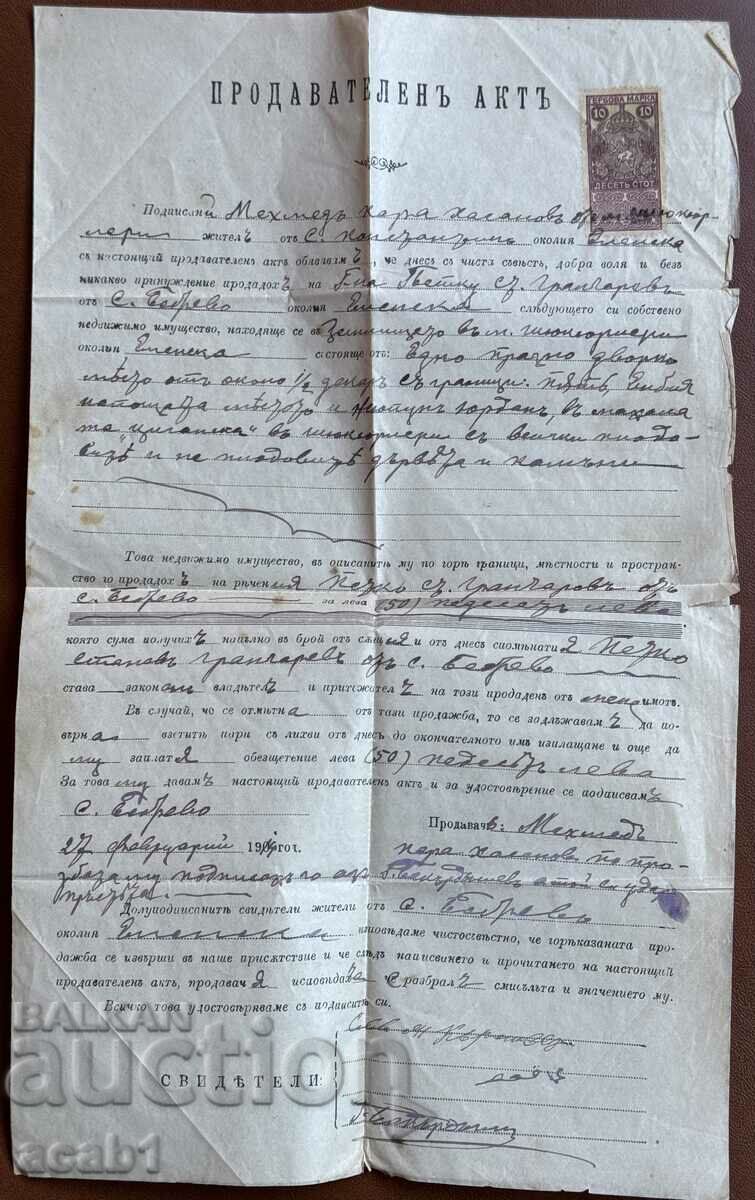 ПРОДАВАТЕЛЕНЪ АКТЪ
ГЕРБОВА МАРКА
10 10
ДЕСЕТЬ СТОТ
Подписаний Мехмедъ Кара Хасановъ
жителъ отъ с. околия Еленска
съ настоящий продавателенъ актъ обявявамъ, че днесъ съ чиста съвѣсть, добра воля и безъ
никакво принуждение продадохъ на Г-на Петку Ст. Гранчаровъ
отъ с. Бебрево околия Еленска слѣдующето си собствено
недвижимо имущество, находяще се въ землището въ м.
околия Еленска състояще отъ: Едно празно дворно
мѣсто отъ около 1/2 декаръ съ граници: пѫть,
мѣсто и Юрданъ, въ махала
та „циганска“ въ съ всички плодо-
витѣ и не плодовитѣ дървѣта и
Това недвижимо имущество, въ описанитѣ му по горѣ граници, мѣстности и простран-
ство го продадохъ на рѣчения Петко Ст. Гранчаровъ отъ
с. Бебрево за лева (50) педесеть лева
която сума получихъ напълно въ брой отъ сѫщия и отъ днесъ споменатия Петко
Станевъ Гранчаровъ отъ с. Бебрево
става законенъ владѣтелъ и притежателъ на този продаденъ отъ мене имотъ.
Въ случай, че се отмѣтна отъ тази продажба, то се задължавамъ да по-
върна взетитѣ пари съ лихви отъ днесъ до окончателното имъ изплащане и още да
му заплатя обезщетение лева (50) педесеть лева
За това му давамъ настоящий продавателенъ актъ и за удостовѣрение се подписвамъ
с. Бебрево
27 Февруарий 190 год.
Продавачъ: Мехмедъ
Кара Хасановъ по про-
подписахъ го азъ
Долуподписанитѣ свидѣтели жители отъ с. Бебрево
околия Еленска изповѣдаме чистосъвѣстно, че горѣказаната про-
дажба се извърши въ наше присѫтствие и че слѣдъ написвание и прочитането на настоящий
продавателенъ актъ, продавачя исповѣдва е разбралъ смисълъта и значението му.
Всичко това удостовѣряваме съ подписитѣ си.
СВИДѢТЕЛИ:
BALKAN
auction
acab1